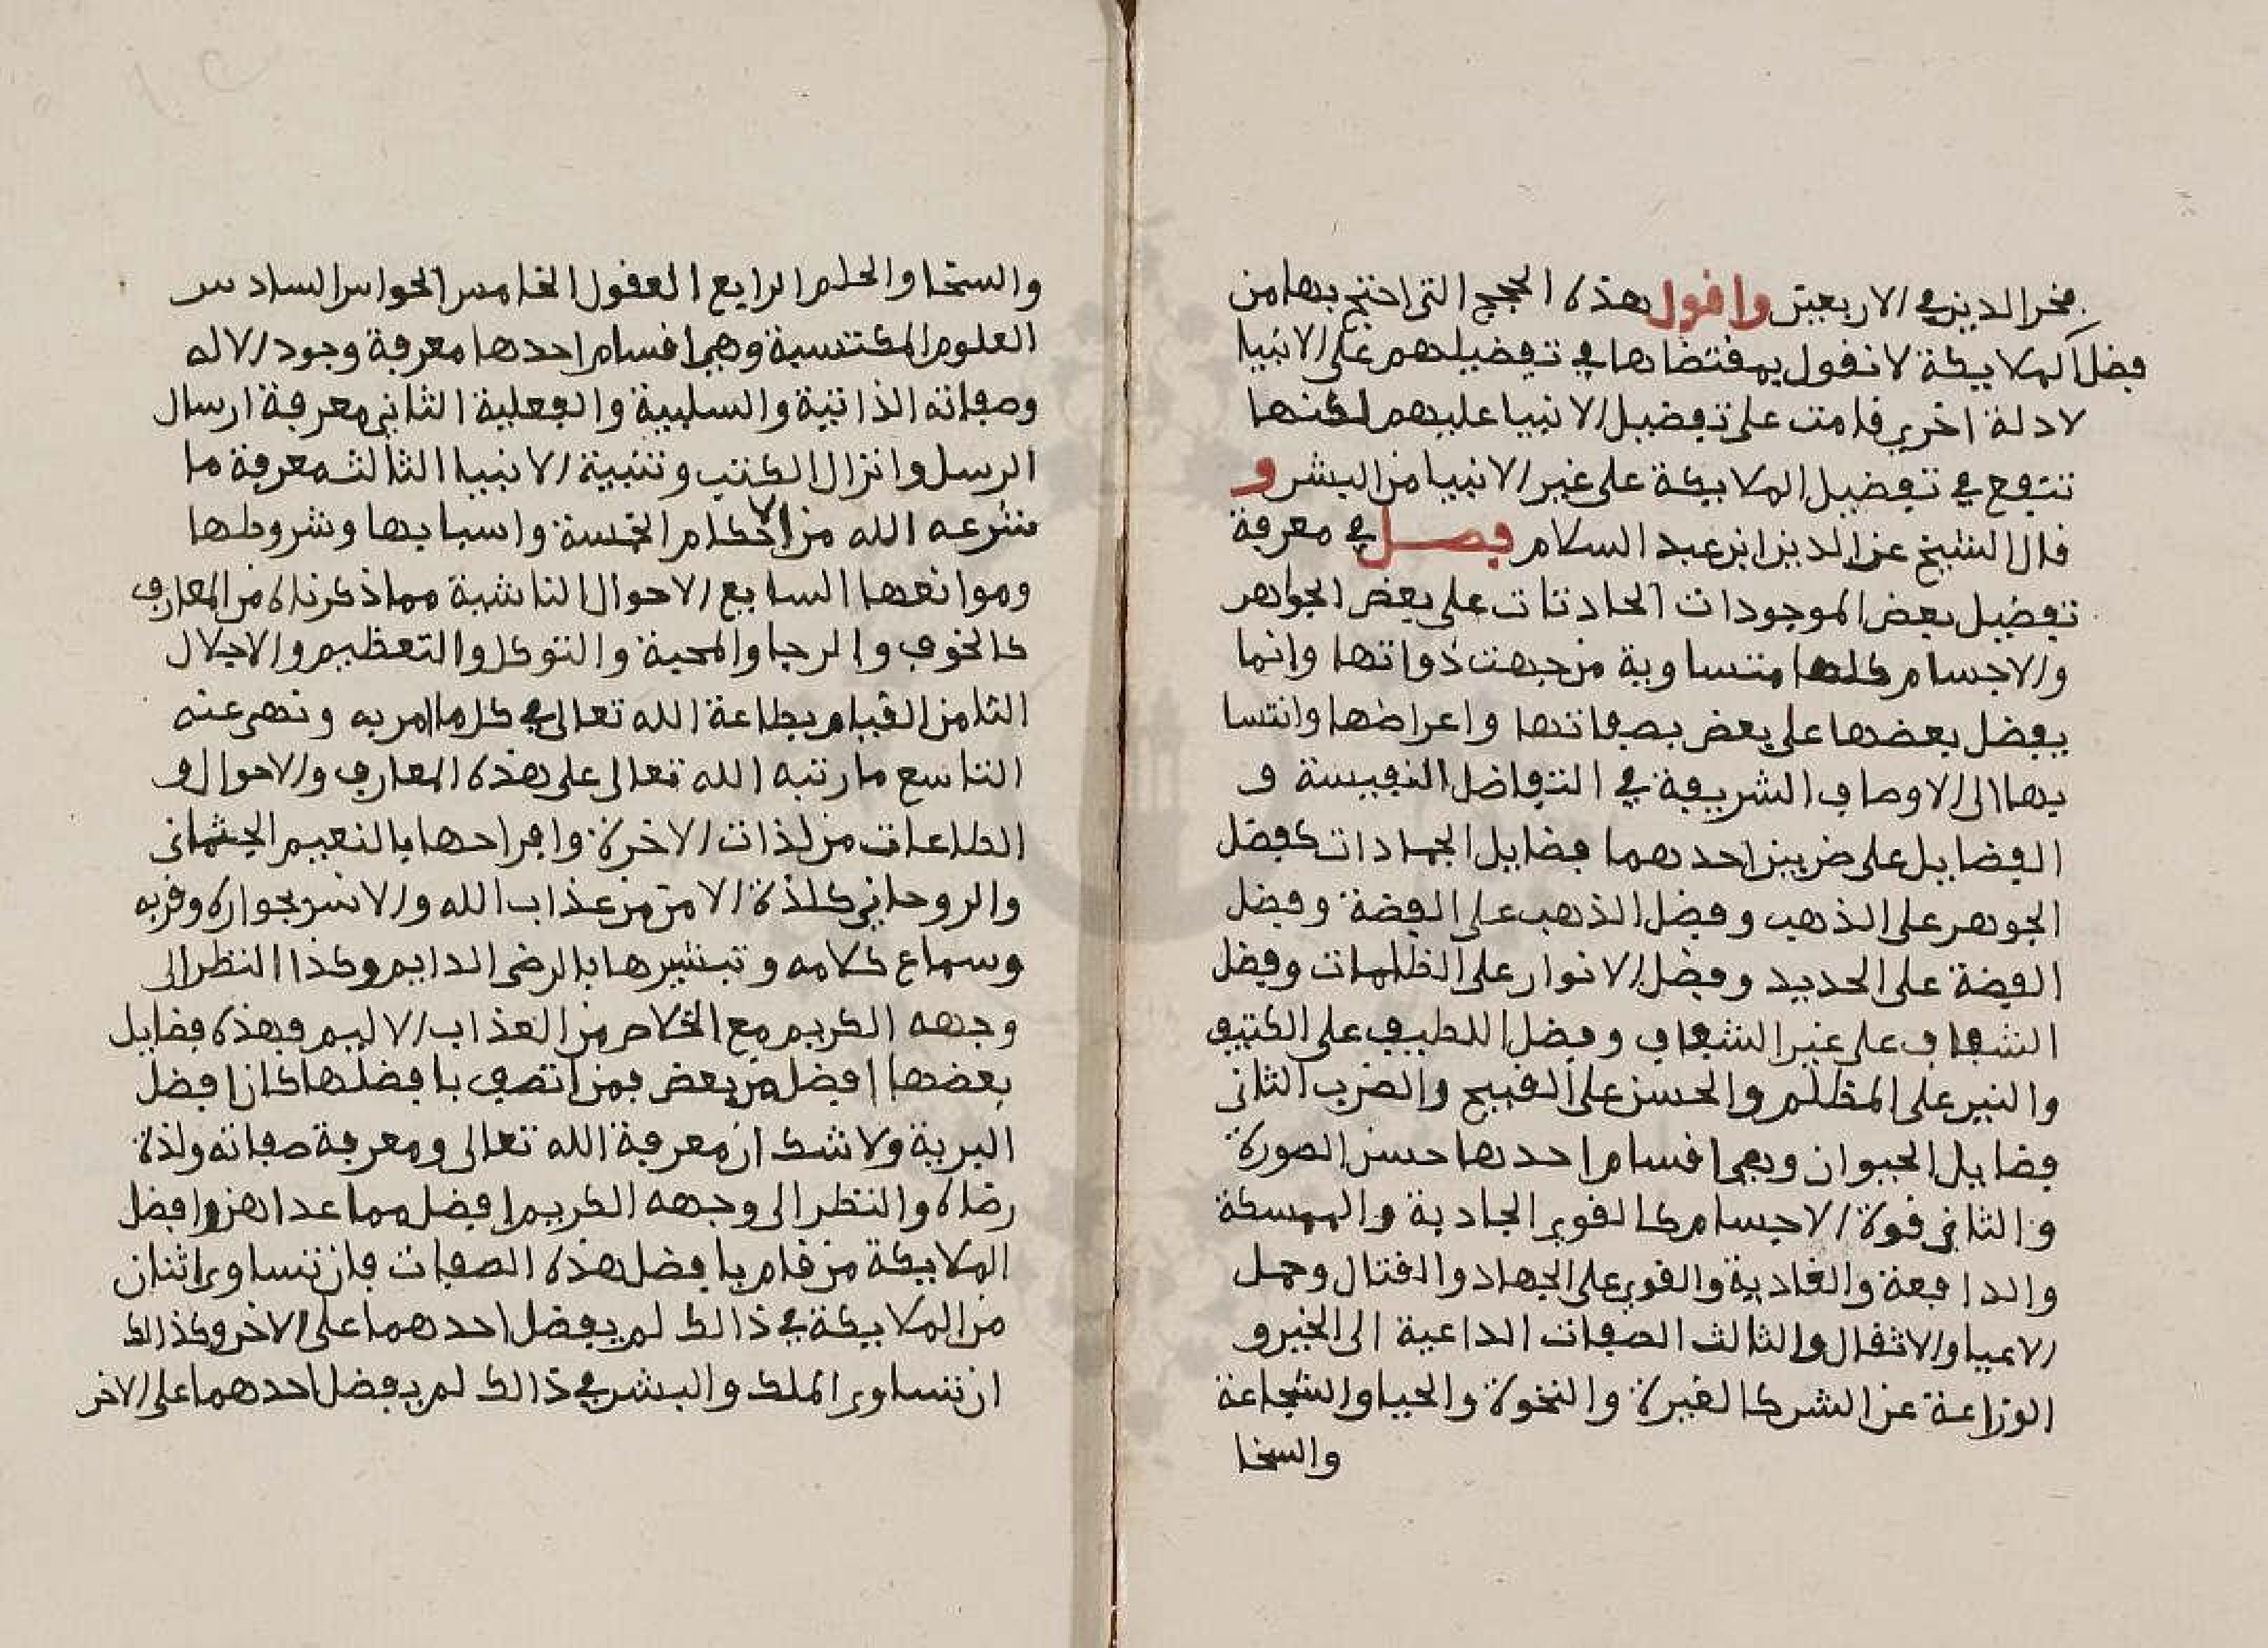 فخر الدين في الاربعين واقول هذه الحجج التي احتج بها من
فضل الملايكة لا نقول بمقتضاها في تفضيلهم على الانبيا
لادلة اخرى قامت على تفضيل الانبيا عليهم لكنها
تنفع في تفضيل الملايكة على غير الانبيا من البشر و
قال الشيخ عز الدين ابن عبد السلام فصل في معرفة
تفضيل بعض الموجودات الحادثات على بعض الجواهر
والاجسام كلها متساوية من جهت ذواتها وانما
يفضل بعضها على بعض بصفاتها واعراضها وانتسا
بها الى الاوصاف الشريفة في التفاضل النفيسة و
الفضايل على ضربين احدهما فضايل الجمادات كفضل
الجوهر على الذهب وفضل الذهب على الفضة وفضل
الفضة على الحديد وفضل الانوار على الظلمات وفضل
الشفاف على غير الشفاف وفضل اللطيف على الكثيف
والنير على المظلم والحسن على القبيح والضرب الثاني
فضايل الحيوان وهي اقسام احدها حسن الصورة
والثاني قوة الاجسام كالقوى الجادبة والممسكة
والدافعة والغادية والقوى على الجهاد والقتال وحمل
الاعبا والاثقال والثالث الصفات الداعية الى الخير و
الوزاعة عن الشر كالغيرة والنخوة والحيا والشجاعة
والسخا
والسخا والحلم الرابع العقول الخامس الحواس السادس
العلوم المكتسبة وهي اقسام احدها معرفة وجود الاله
وصفاته الذاتية والسلبية والفعلية الثاني معرفة ارسال
الرسل وانزال الكتب وتنبية الانبيا الثالث معرفة ما
شرعه الله من الاحكام الخمسة واسبابها وشروطها
وموانعها السابع الاحوال الناشية مما ذكرناه من المعارف
كالخوف والرجا والمحبة والتوكل والتعظيم والاجلال
الثامن القيام بطاعة الله تعالى في كل ما امر به ونهى عنه
التاسع ما رتبه الله تعالى على هذه المعارف والاحوال و
الطاعات من لذات الاخرة وافراحها بالنعيم الجثماني
والروحاني كلذة الامن من عذاب الله والانس بجواره وقربه
وسماع كلامه وتبشيرها بالرضى الدايم وكذا النظر الى
وجهه الكريم مع الخلاص من العذاب الاليم فهذه فضايل
بعضها افضل من بعض فمن اتصف بافضلها كان افضل
البرية ولا شك ان معرفة الله تعالى ومعرفة صفاته ولذة
رضاه والنظر الى وجهه الكريم افضل مما عداهن وافضل
الملايكة من قام بافضل هذه الصفات فان تساوى اثنان
من الملايكة في ذالك لم يفضل احدهما على الاخر وكذالك
ان تساوى الملك والبشر في ذالك لم يفضل احدهما على الاخر